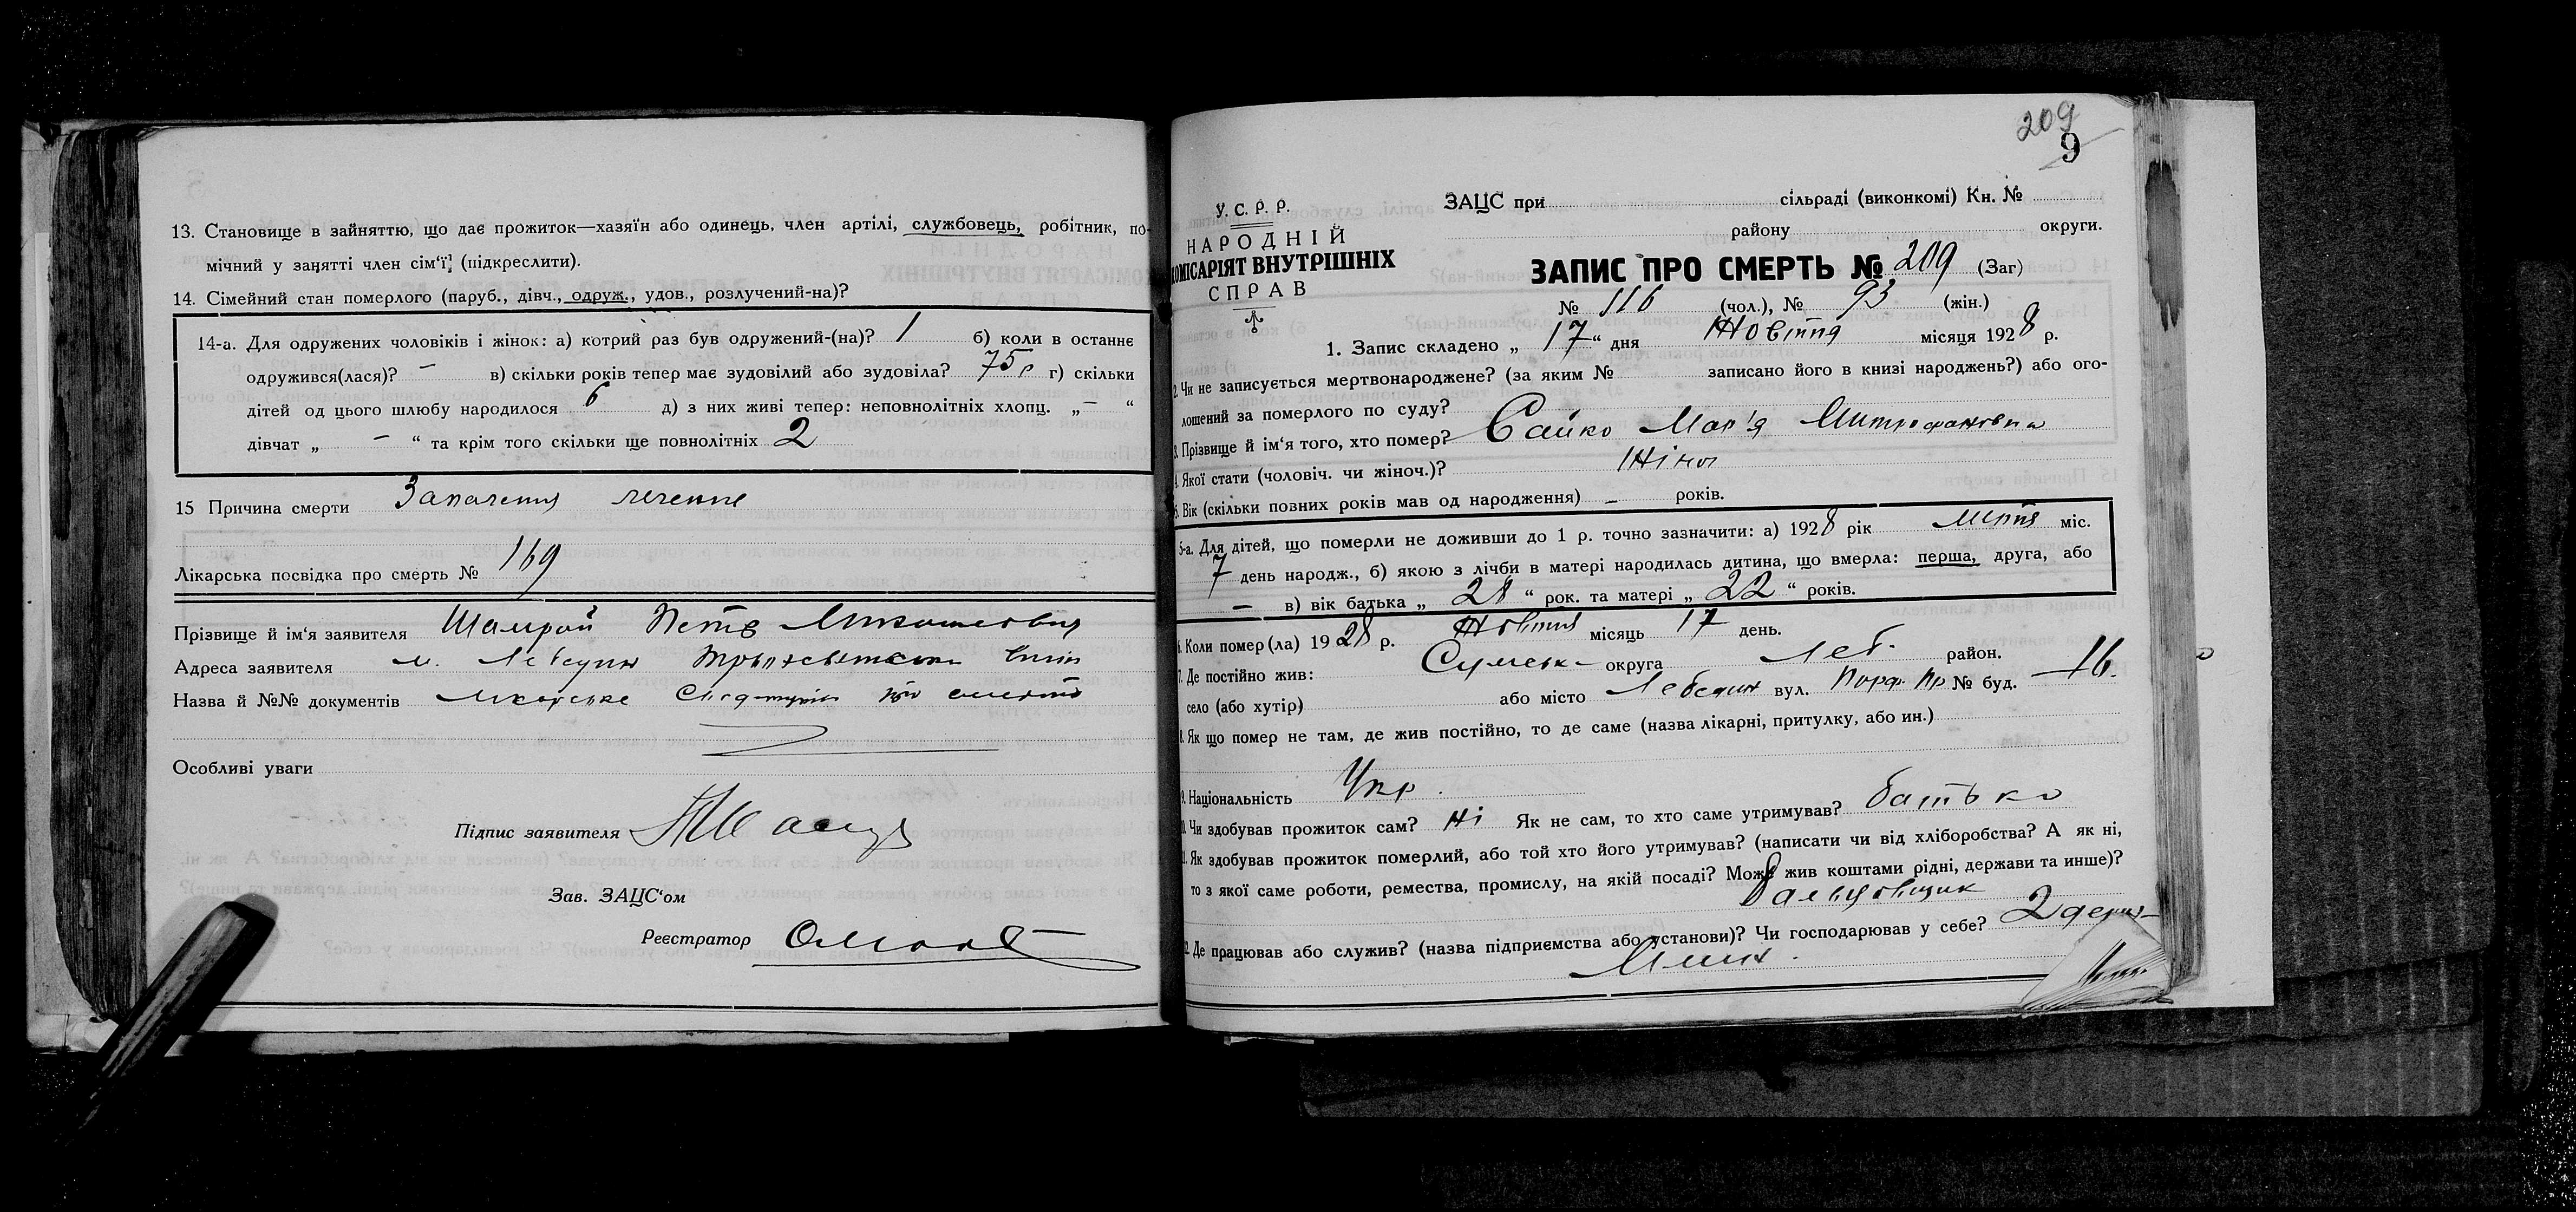 13. Становище в зайняттю, що дає прожиток—хазяїн або одинець, член артілі, службовець, робітник, по-
мічний у занятті член сім'ї, (підкреслити).
14. Сімейний стан померлого (паруб., дівч., одруж., удов., розлучений-на)?
14-а. Для одружених чоловіків і жінок: а) котрий раз був одружений-(на)? 1 б) коли в останнє
одружився(лася)? – в) скільки років тепер має зудовілий або зудовіла? 75 р г) скільки
дітей од цього шлюбу народилося 6 д) з них живі тепер: неповнолітніх хлопц. „–“
дівчат „–“ та крім того скільки ще повнолітніх 2
15 Причина смерти Запалення
Лікарська посвідка про смерть № 169
Прізвище й ім'я заявителя Шамрай Петр
Адреса заявителя м. Лебедин
Назва й №№ документів Лікарське про смерть
Особливі уваги
Підпис заявителя
Зав. ЗАЦС'ом
Реєстратор
209
9
У. С. Р. Р.
НАРОДНІЙ
КОМІСАРІЯТ ВНУТРІШНІХ
СПРАВ
ЗАЦС при сільраді (виконкомі) Кн. №
району округи.
ЗАПИС ПРО СМЕРТЬ № 209 (Заг)
№ 116 (чол.), № 93 (жін.)
1. Запис складено „17“ дня Жовтня місяця 1928 р.
2. Чи не записується мертвонароджене? (за яким № записано його в книзі народжень?) або ого-
лошений за померлого по суду?
3. Прізвище й ім'я того, хто помер? Сайко Мар'я Митрофановна
4. Якої стати (чоловіч. чи жіноч.)? Жіноч
5. Вік (скільки повних років мав од народження) – років.
5-а. Для дітей, що померли не доживши до 1 р. точно зазначити: а) 1928 рік міс.
7 день народж., б) якою з лічби в матері народилась дитина, що вмерла: перша, друга, або
– в) вік батька „28“ рок. та матері „22“ років.
6. Коли помер(ла) 1928 р. Жовтня місяць 17 день.
7. Де постійно жив: Сумськ округа Леб. район.
село (або хутір) або місто Лебедин вул. № буд. 16.
8. Як що помер не там, де жив постійно, то де саме (назва лікарні, притулку, або ин.)
9. Національність Укр.
10. Чи здобував прожиток сам? Ні Як не сам, то хто саме утримував? батько
11. Як здобував прожиток померлий, або той хто його утримував? (написати чи від хліборобства? А як ні,
то з якої саме роботи, ремества, промислу, на якій посаді? Може жив коштами рідні, держави та инше)?
Вальцовщик
12. Де працював або служив? (назва підприємства або установи)? Чи господарював у себе? 2 держ-
Млин.